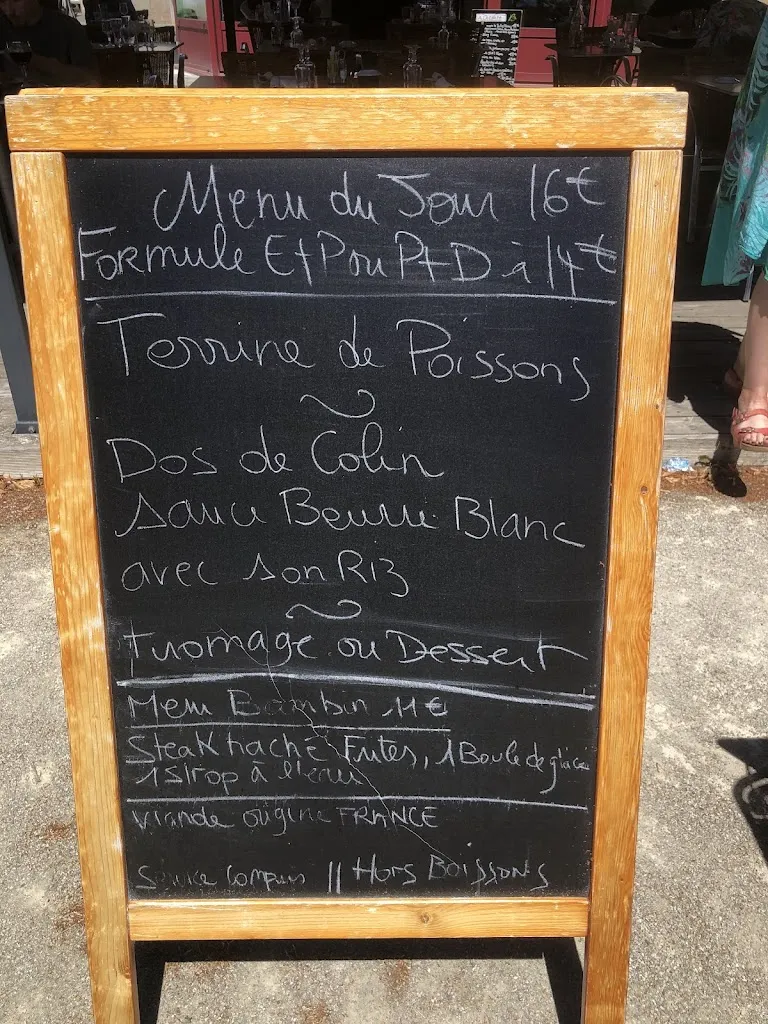 Menu du Jour 16€
Formule E+P ou P+D à 14€
Terrine de Poissons
Dos de Colin
sauce Beurre Blanc
avec son Riz
Fromage ou Dessert
Menu Bambin 11€
Steak haché Frites, 1 Boule de glace
1 sirop à l'eau
Viande origine FRANCE
Service Compris || Hors BoissonS